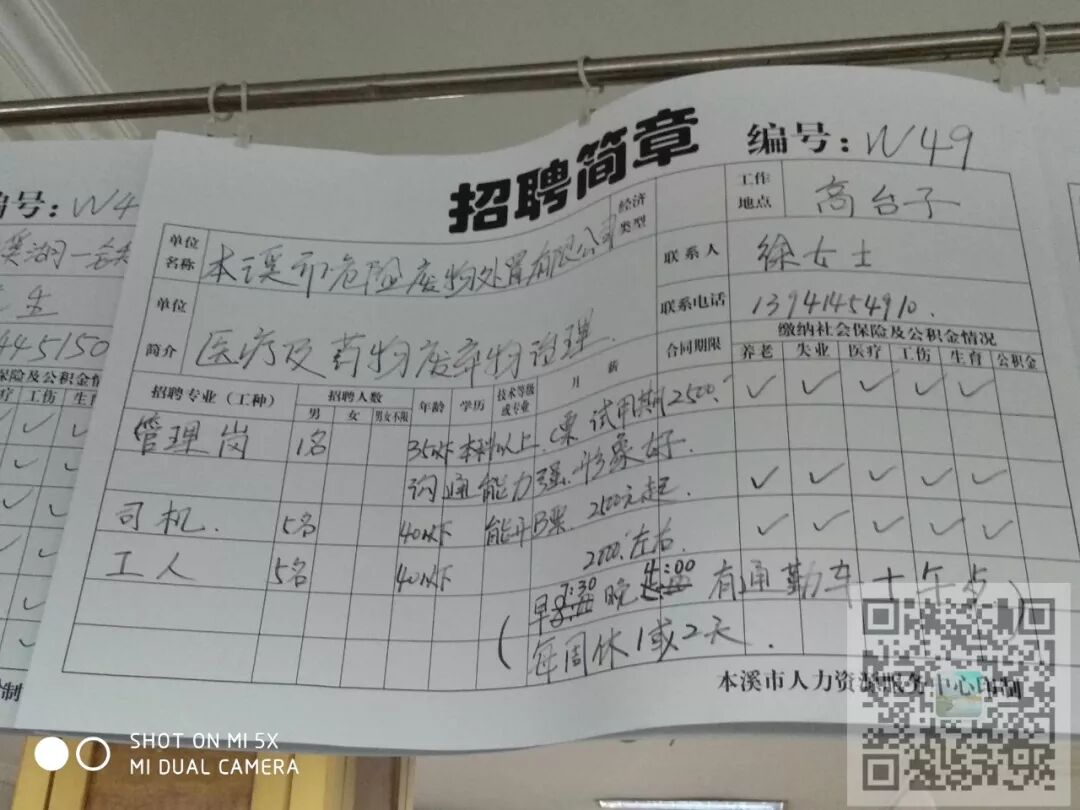 招聘简章 编号：W49
单位名称 本溪市危险废物处置有限公司 经济类型 工作地点 高台子
联系人 徐女士
单位简介 医疗及药物废弃物治理 联系电话 13941454910.
合同期限 缴纳社会保险及公积金情况
养老 失业 医疗 工伤 生育 公积金
招聘专业（工种） 招聘人数 年龄 学历 技术等级或专业 月薪
男 女 男女不限
管理岗 1名 35以下 本科以上 试用期2500. ✓ ✓ ✓ ✓ ✓
沟通能力强.形象好.
司机. 5名 40以下 能开B票. 2500元起. ✓ ✓ ✓ ✓ ✓
工人 5名 40以下 2000.左右. ✓ ✓ ✓ ✓ ✓
（早7:30 晚4:00 有通勤车+午
每周休1或2天.
本溪市人力资源服务中心印制
编号：W4
445150
保险及公积金情
疗 工伤 生育
SHOT ON MI 5X
MI DUAL CAMERA